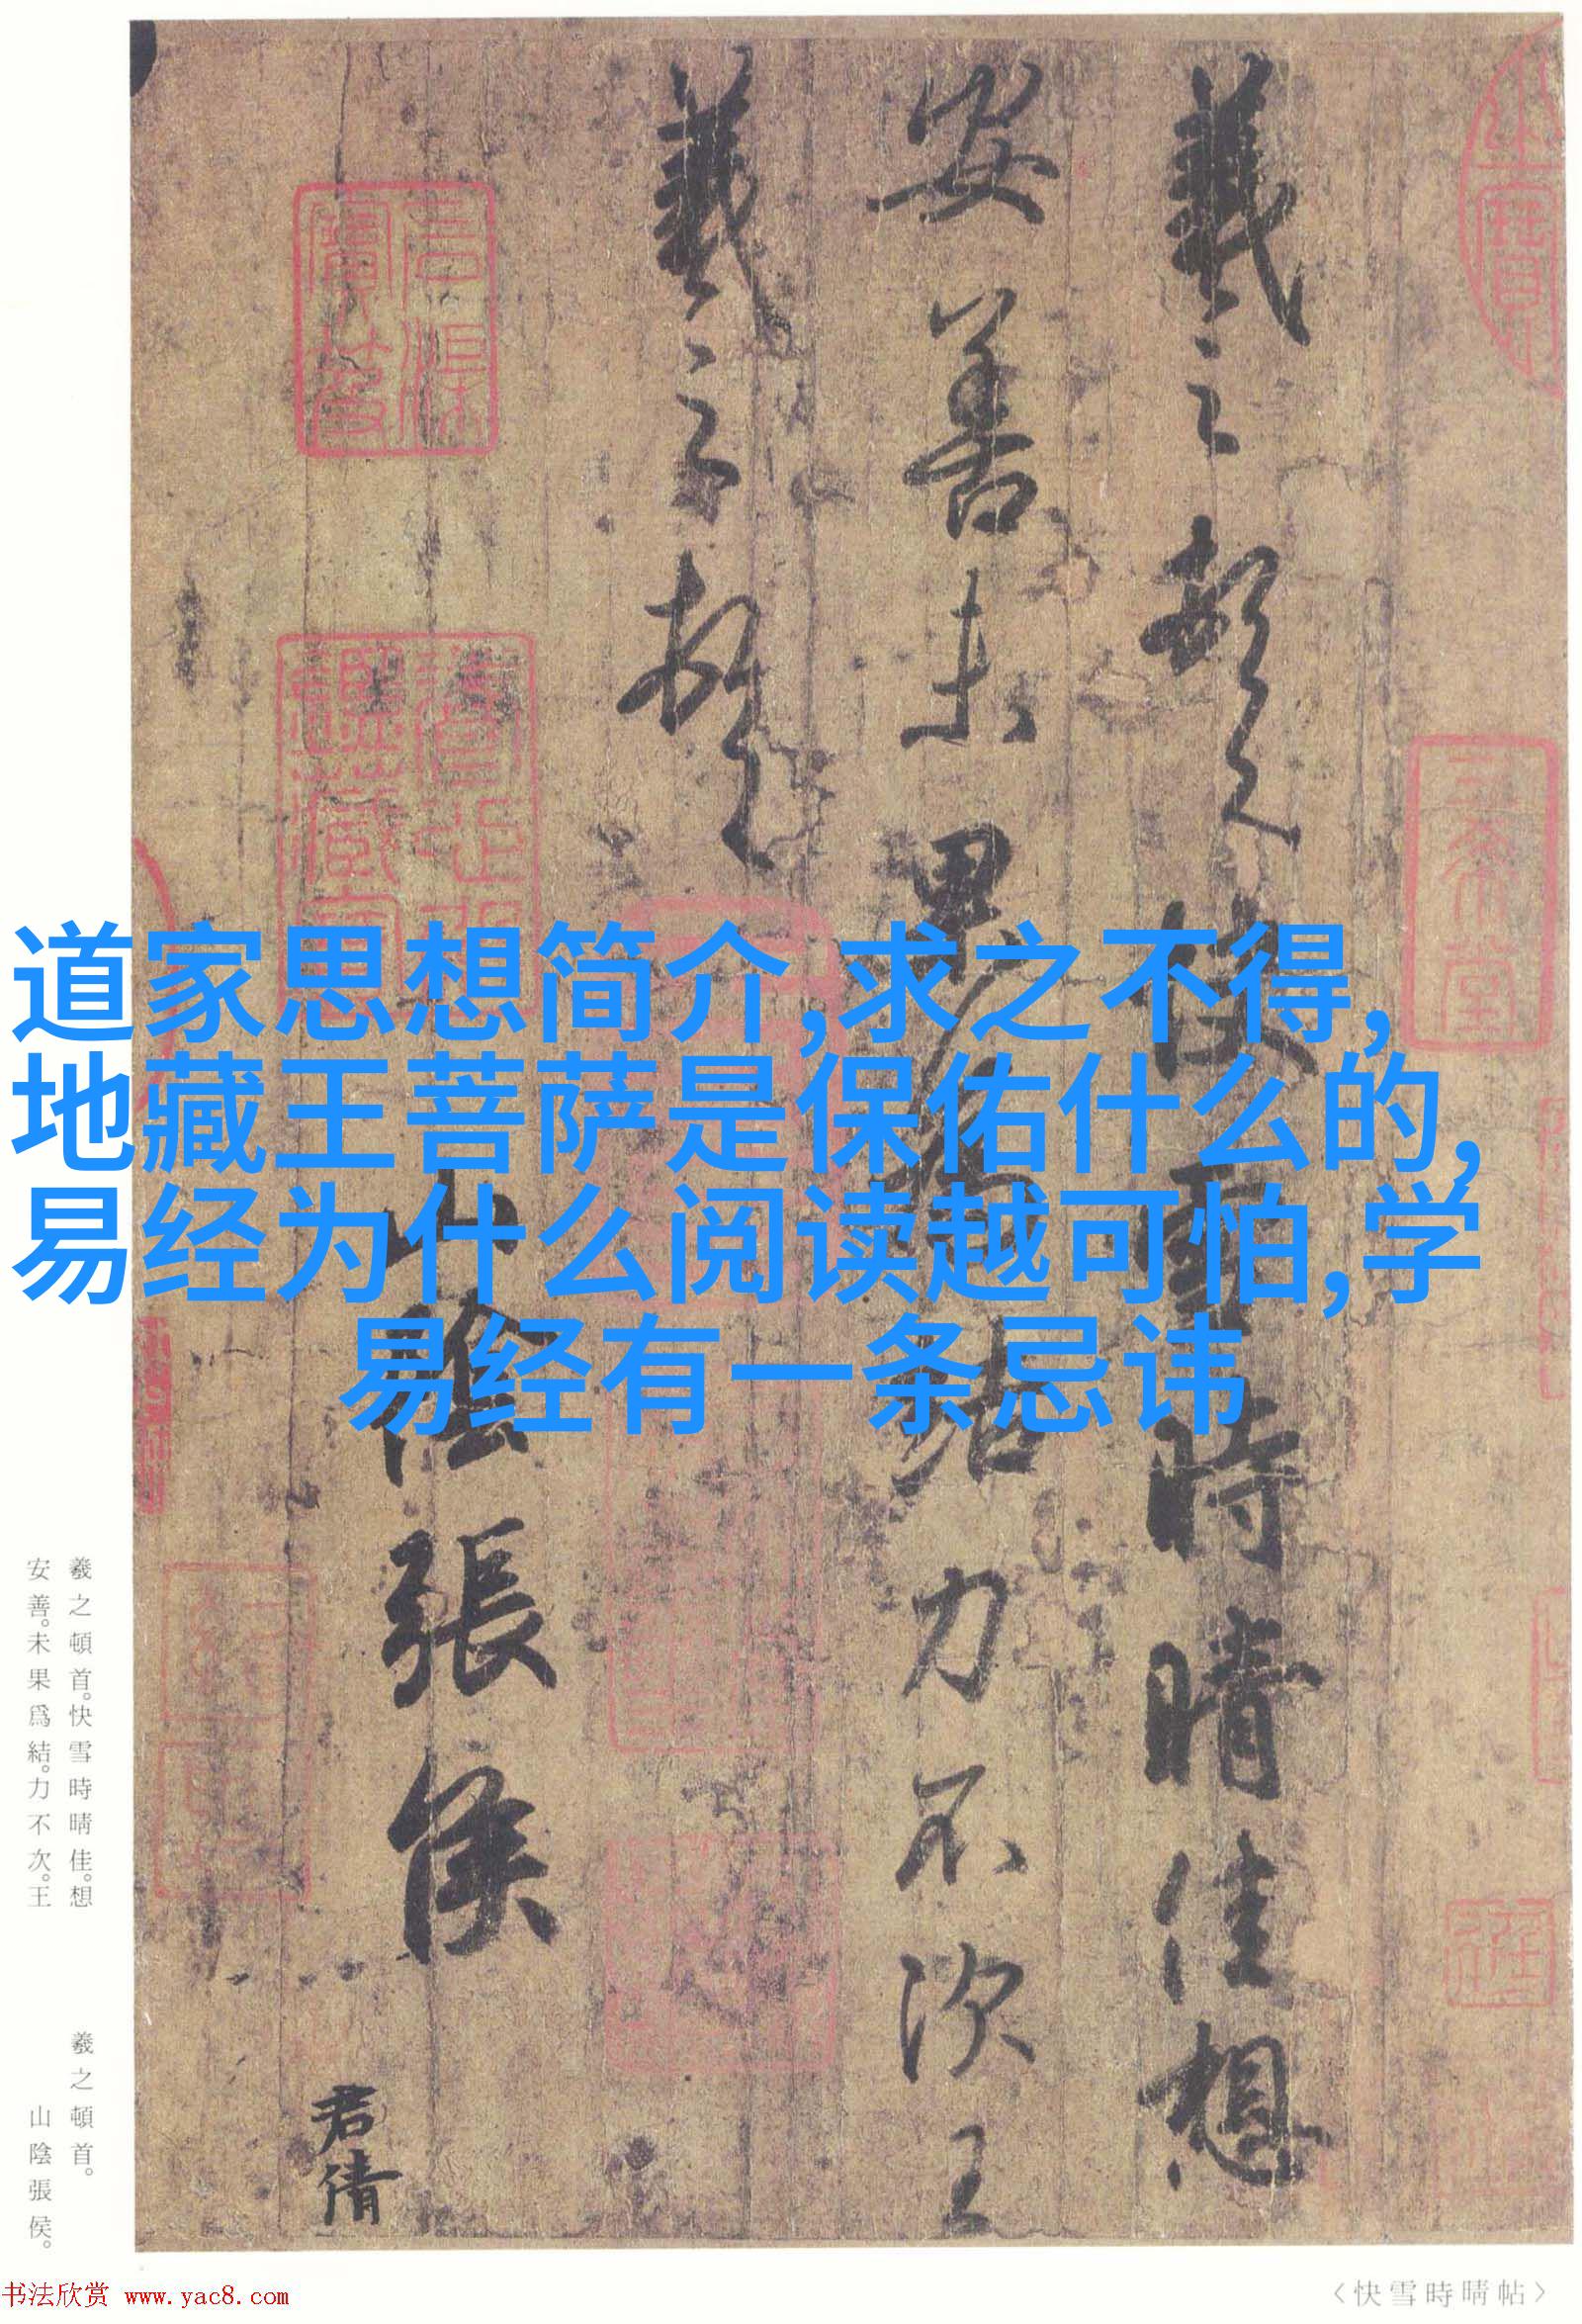 道家思想简介,求之不得,
地藏王菩萨是保佑什么的,
易经为什么阅读越可怕,学
易经有一条忌讳
羲之頓首快雪時晴佳想
安善未果為結力不次王
羲之頓首
山陰張侯
君倩
羲之頓首。快雪時晴佳。想
安善。未果爲結。力不次。王
羲之頓首。
山陰張侯。
書法欣赏 www.yac8.com
〈快雪時晴帖〉